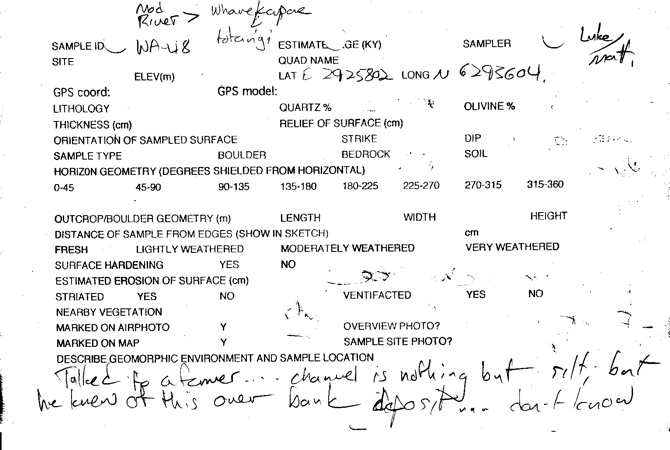 Mod Wharekapae
River > &
totarigi
SAMPLE ID WA-48 ESTIMATE .GE (KY) SAMPLER Luke/
Matt.
SITE QUAD NAME
ELEV(m) LAT E 2925802 LONG N 6293604.
GPS coord: GPS model:
LITHOLOGY QUARTZ % OLIVINE %
THICKNESS (cm) RELIEF OF SURFACE (cm)
ORIENTATION OF SAMPLED SURFACE STRIKE DIP
SAMPLE TYPE BOULDER BEDROCK SOIL
HORIZON GEOMETRY (DEGREES SHIELDED FROM HORIZONTAL)
0-45 45-90 90-135 135-180 180-225 225-270 270-315 315-360
OUTCROP/BOULDER GEOMETRY (m) LENGTH WIDTH HEIGHT
DISTANCE OF SAMPLE FROM EDGES (SHOW IN SKETCH) cm
FRESH LIGHTLY WEATHERED MODERATELY WEATHERED VERY WEATHERED
SURFACE HARDENING YES NO
ESTIMATED EROSION OF SURFACE (cm)
STRIATED YES NO VENTIFACTED YES NO
NEARBY VEGETATION
MARKED ON AIRPHOTO Y OVERVIEW PHOTO?
MARKED ON MAP Y SAMPLE SITE PHOTO?
DESCRIBE GEOMORPHIC ENVIRONMENT AND SAMPLE LOCATION
Talked to a farmer.... channel is nothing but silt, but
he knew of this over bank deposit... don't know